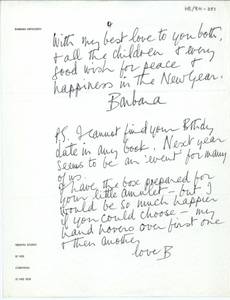 BARBARA HEPWORTH
With my best love to you both,
& all the children & every
good wish for peace &
happiness in the New Year.
Barbara
P.S. I cannot find your Bthday
date in any book. Next year
seems to be an 'event' for many
of us.
I have the box prepared for
your little amulet – but I
would be so much happier
if you could choose – my
hand hovers over first one
& then another
love B
TREWYN STUDIO
ST IVES
CORNWALL